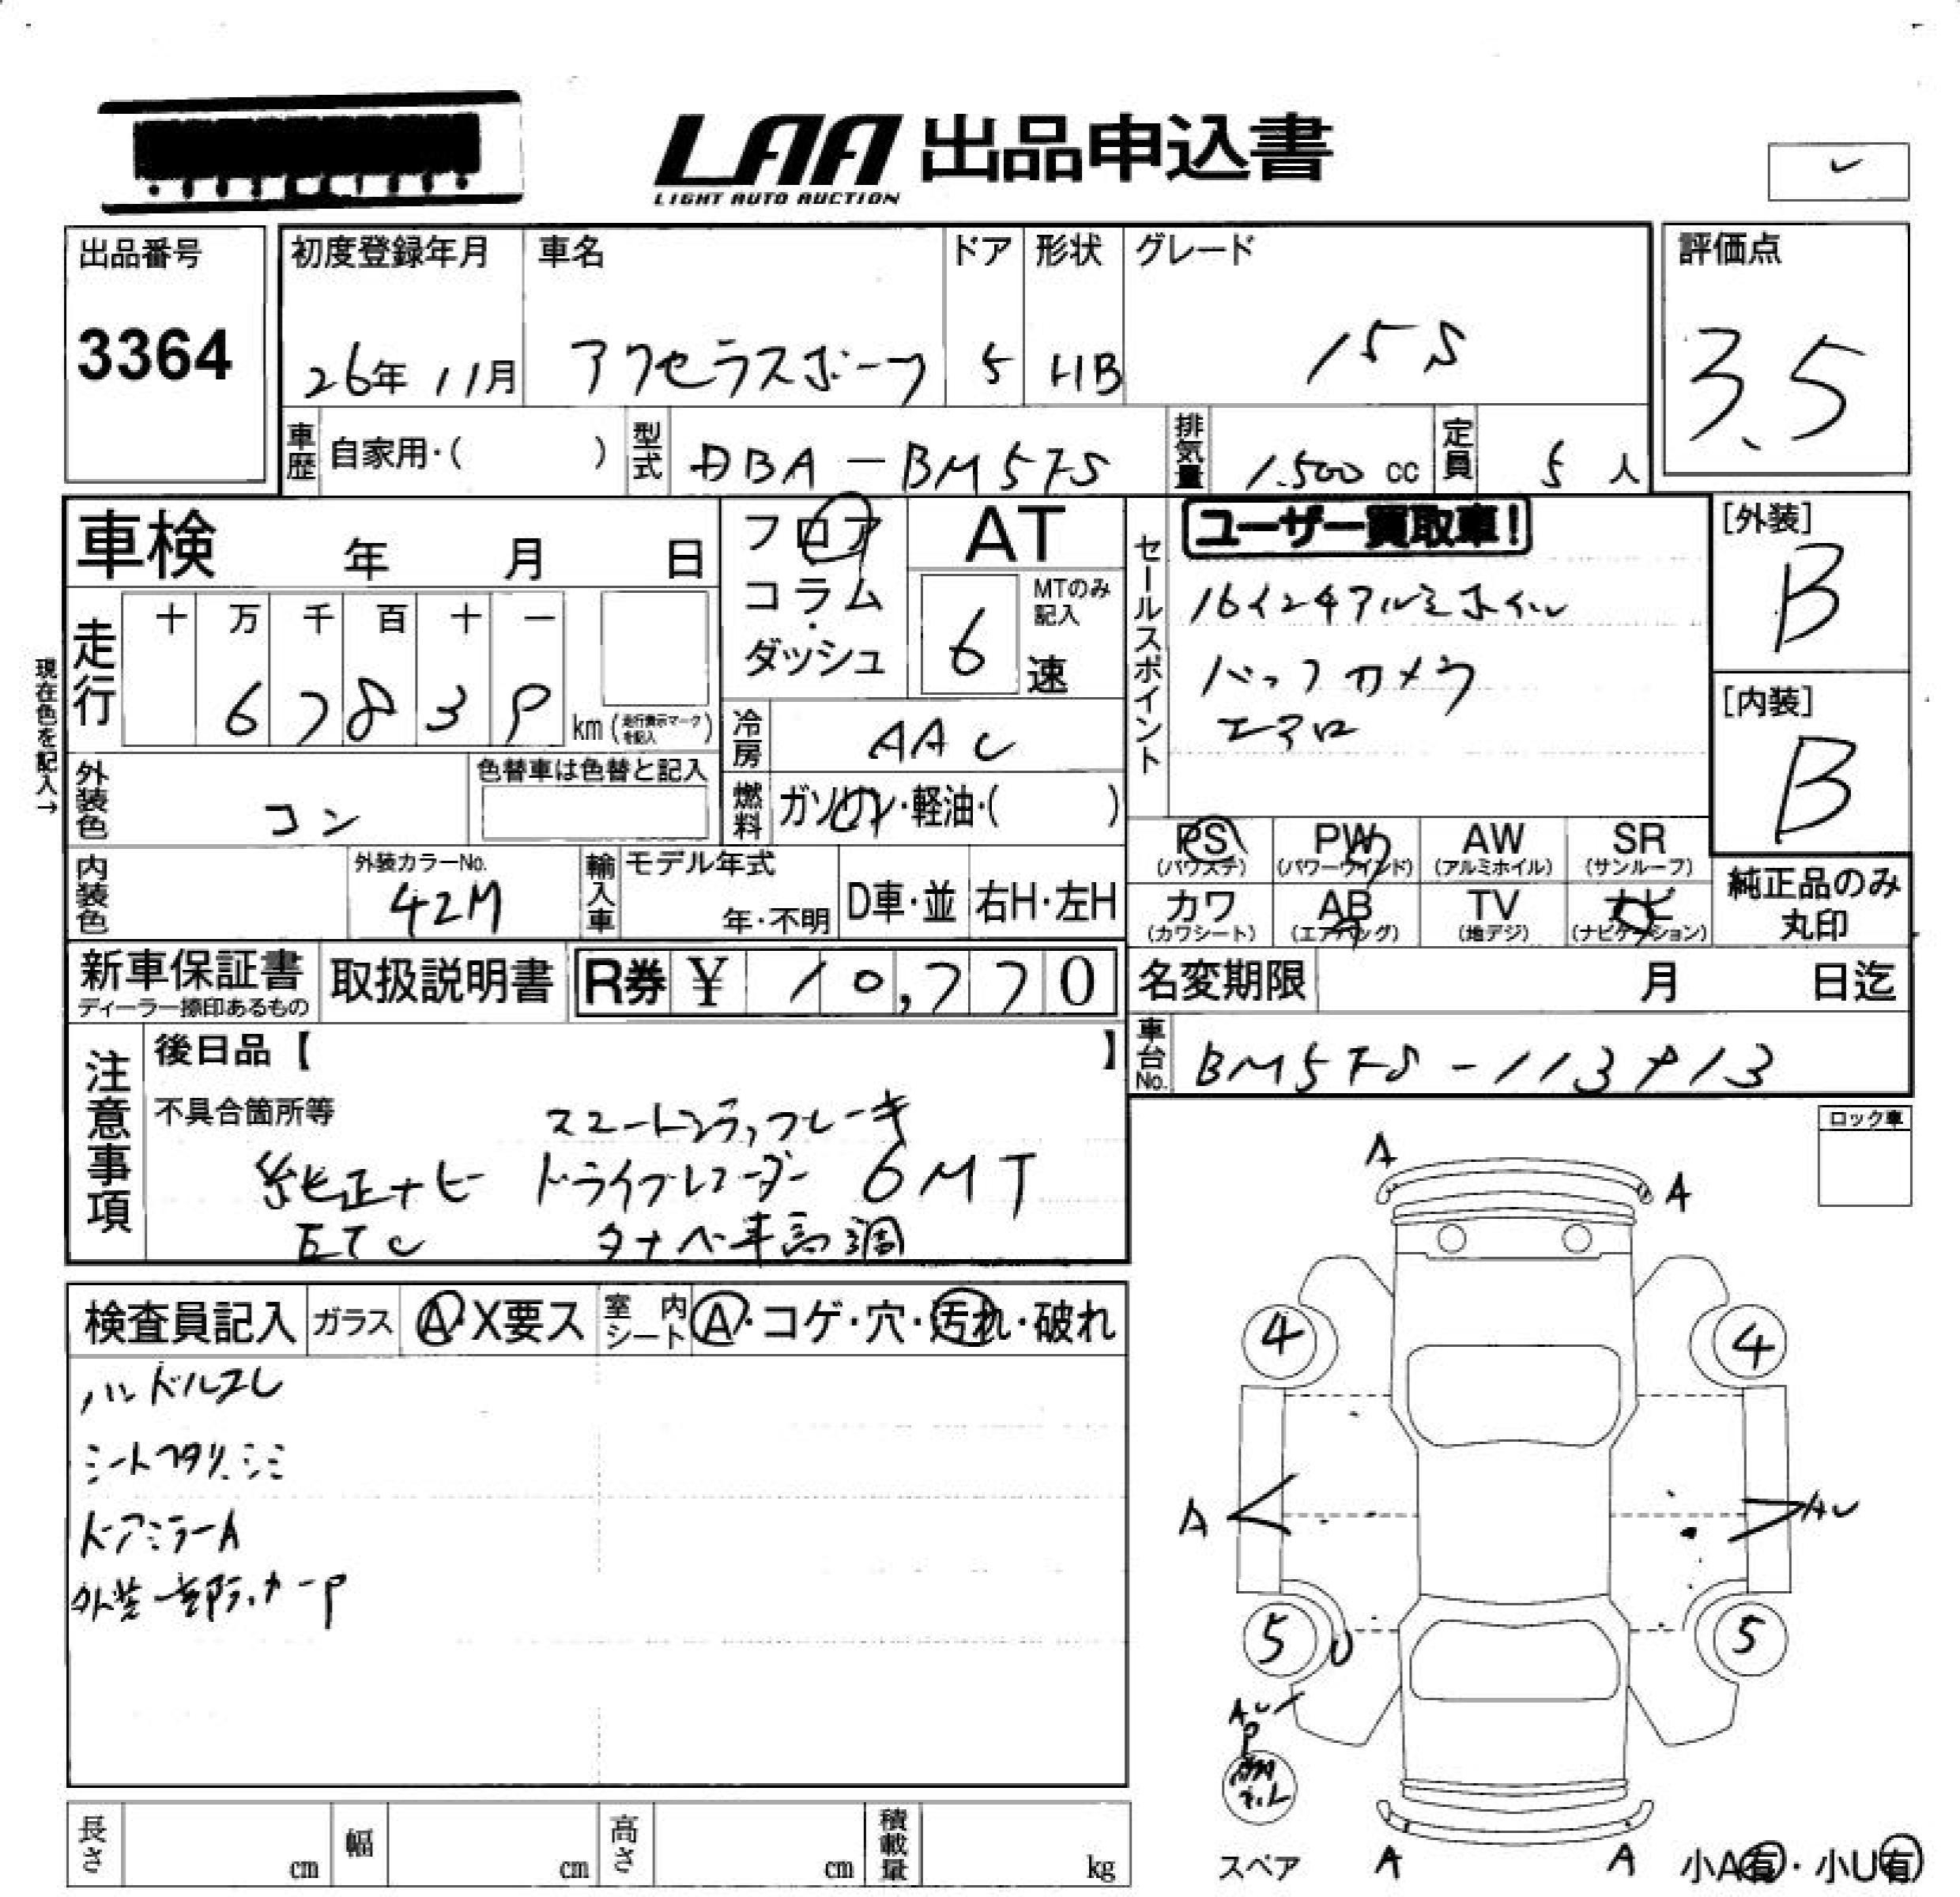 LAA 出品申込書
LIGHT AUTO AUCTION
出品番号
3364
初度登録年月
26年 11月
車名
アクセラスポーツ
ドア
5
形状
HB
グレード
15S
評価点
3.5
車歴 自家用・( )
型式 DBA-BM5FS
排気量 1.500 cc
定員 5 人
車検 年 月 日
フロア
コラム
ダッシュ
AT
6 速
MTのみ
記入
セールスポイント
ユーザー買取車!
16インチアルミホイル
バックカメラ
エアロ
[外装]
B
[内装]
B
現在色を記入→
走行
十 万 千 百 十 一
6 7 8 3 9 km (走行表示マークを記入)
冷房 AAC
外装色 コン
色替車は色替と記入
燃料 ガソリン・軽油・( )
PS (パワステ)
PW (パワーウインド)
AW (アルミホイル)
SR (サンルーフ)
カワ (カワシート)
AB (エアバッグ)
TV (地デジ)
ナビ (ナビゲーション)
純正品のみ
丸印
内装色
外装カラーNo.
42M
輸入車
モデル年式
年・不明
D車・並
右H・左H
新車保証書
ディーラー捺印あるもの
取扱説明書
R券 ¥ 10,770
名変期限 月 日迄
車台No. BM5FS-113913
注意事項
後日品【 】
不具合箇所等
スマートシティブレーキ
純正ナビ ドライブレコーダー 6MT
ETC タナベ車高調
ロック車
検査員記入
ガラス A・X要ス
室内シート A・コゲ・穴・汚れ・破れ
ハンドルスレ
シートヘタリ.シミ
ドアミラーA
外装一部ラッカーP
A
A
4
4
A
AU
5
U
5
AU
P
スペア
A
A
小A有・小U有
長さ cm
幅 cm
高さ cm
積載量 kg